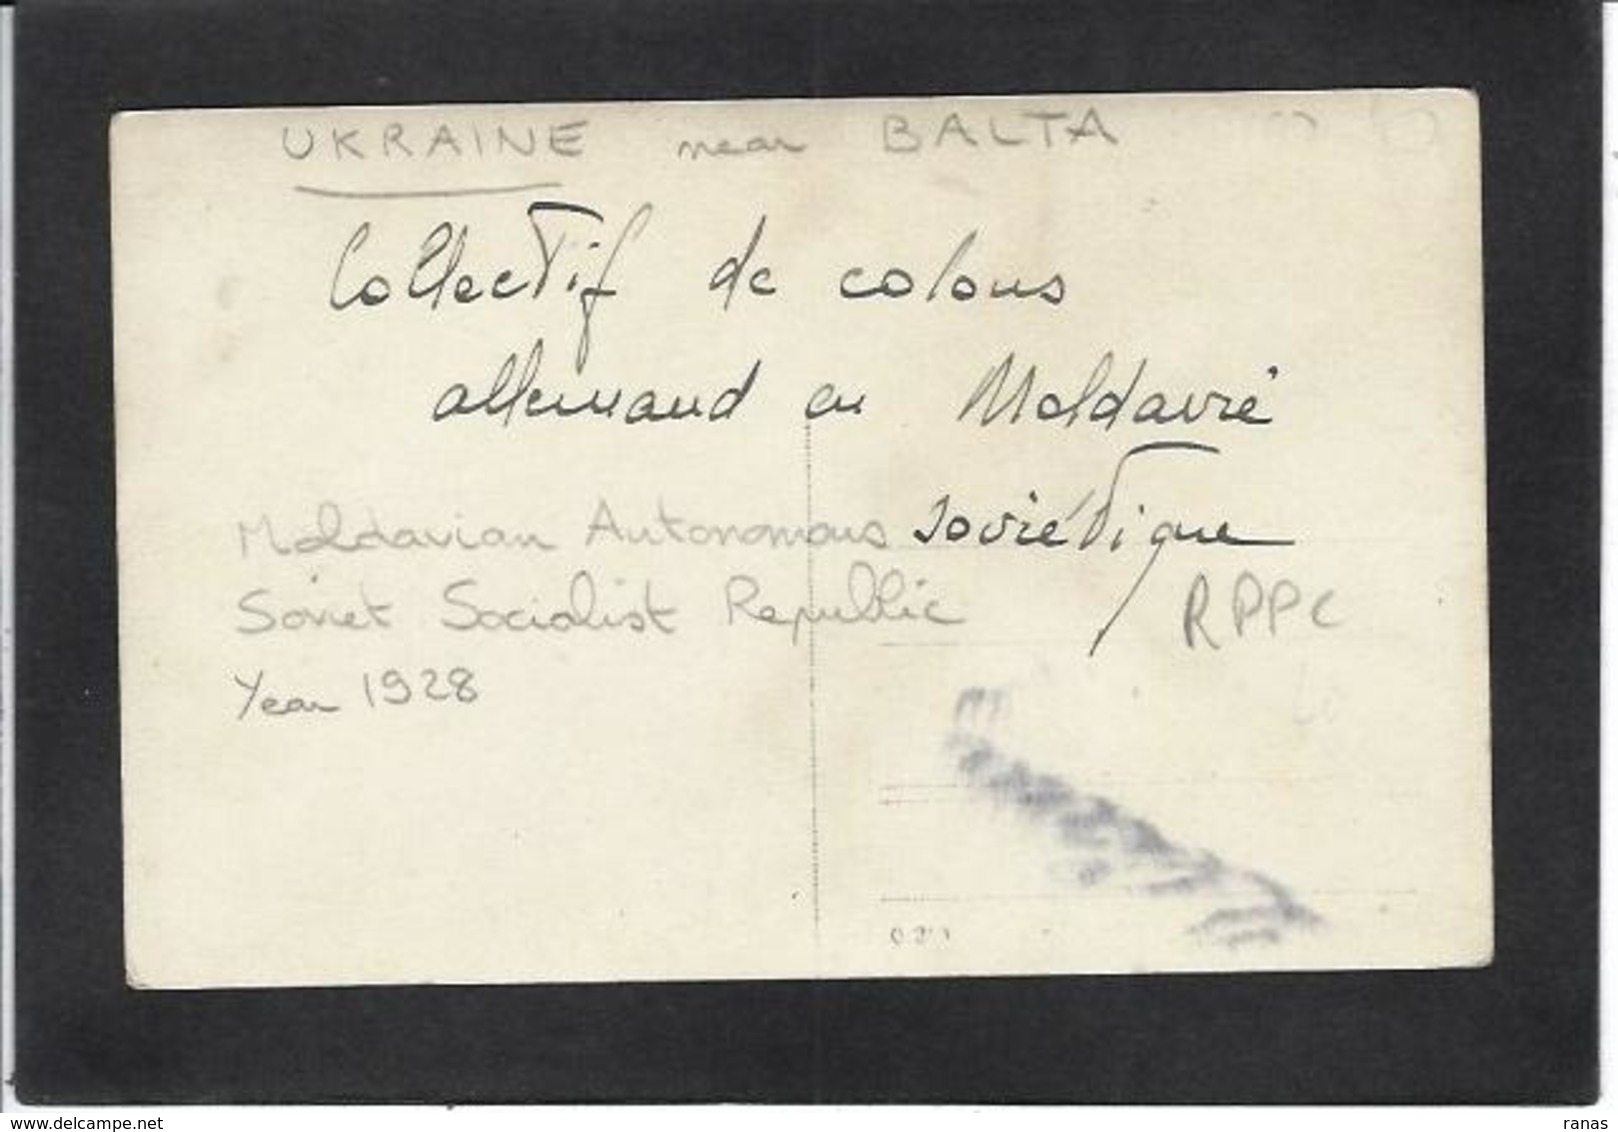 UKRAINE near BALTA
Collectif de colons
allemand en Moldavie
soviétique
Moldavian Autonomous
Soviet Socialist Republic
RPPC
Year 1928
www.delcampe.net
ranas